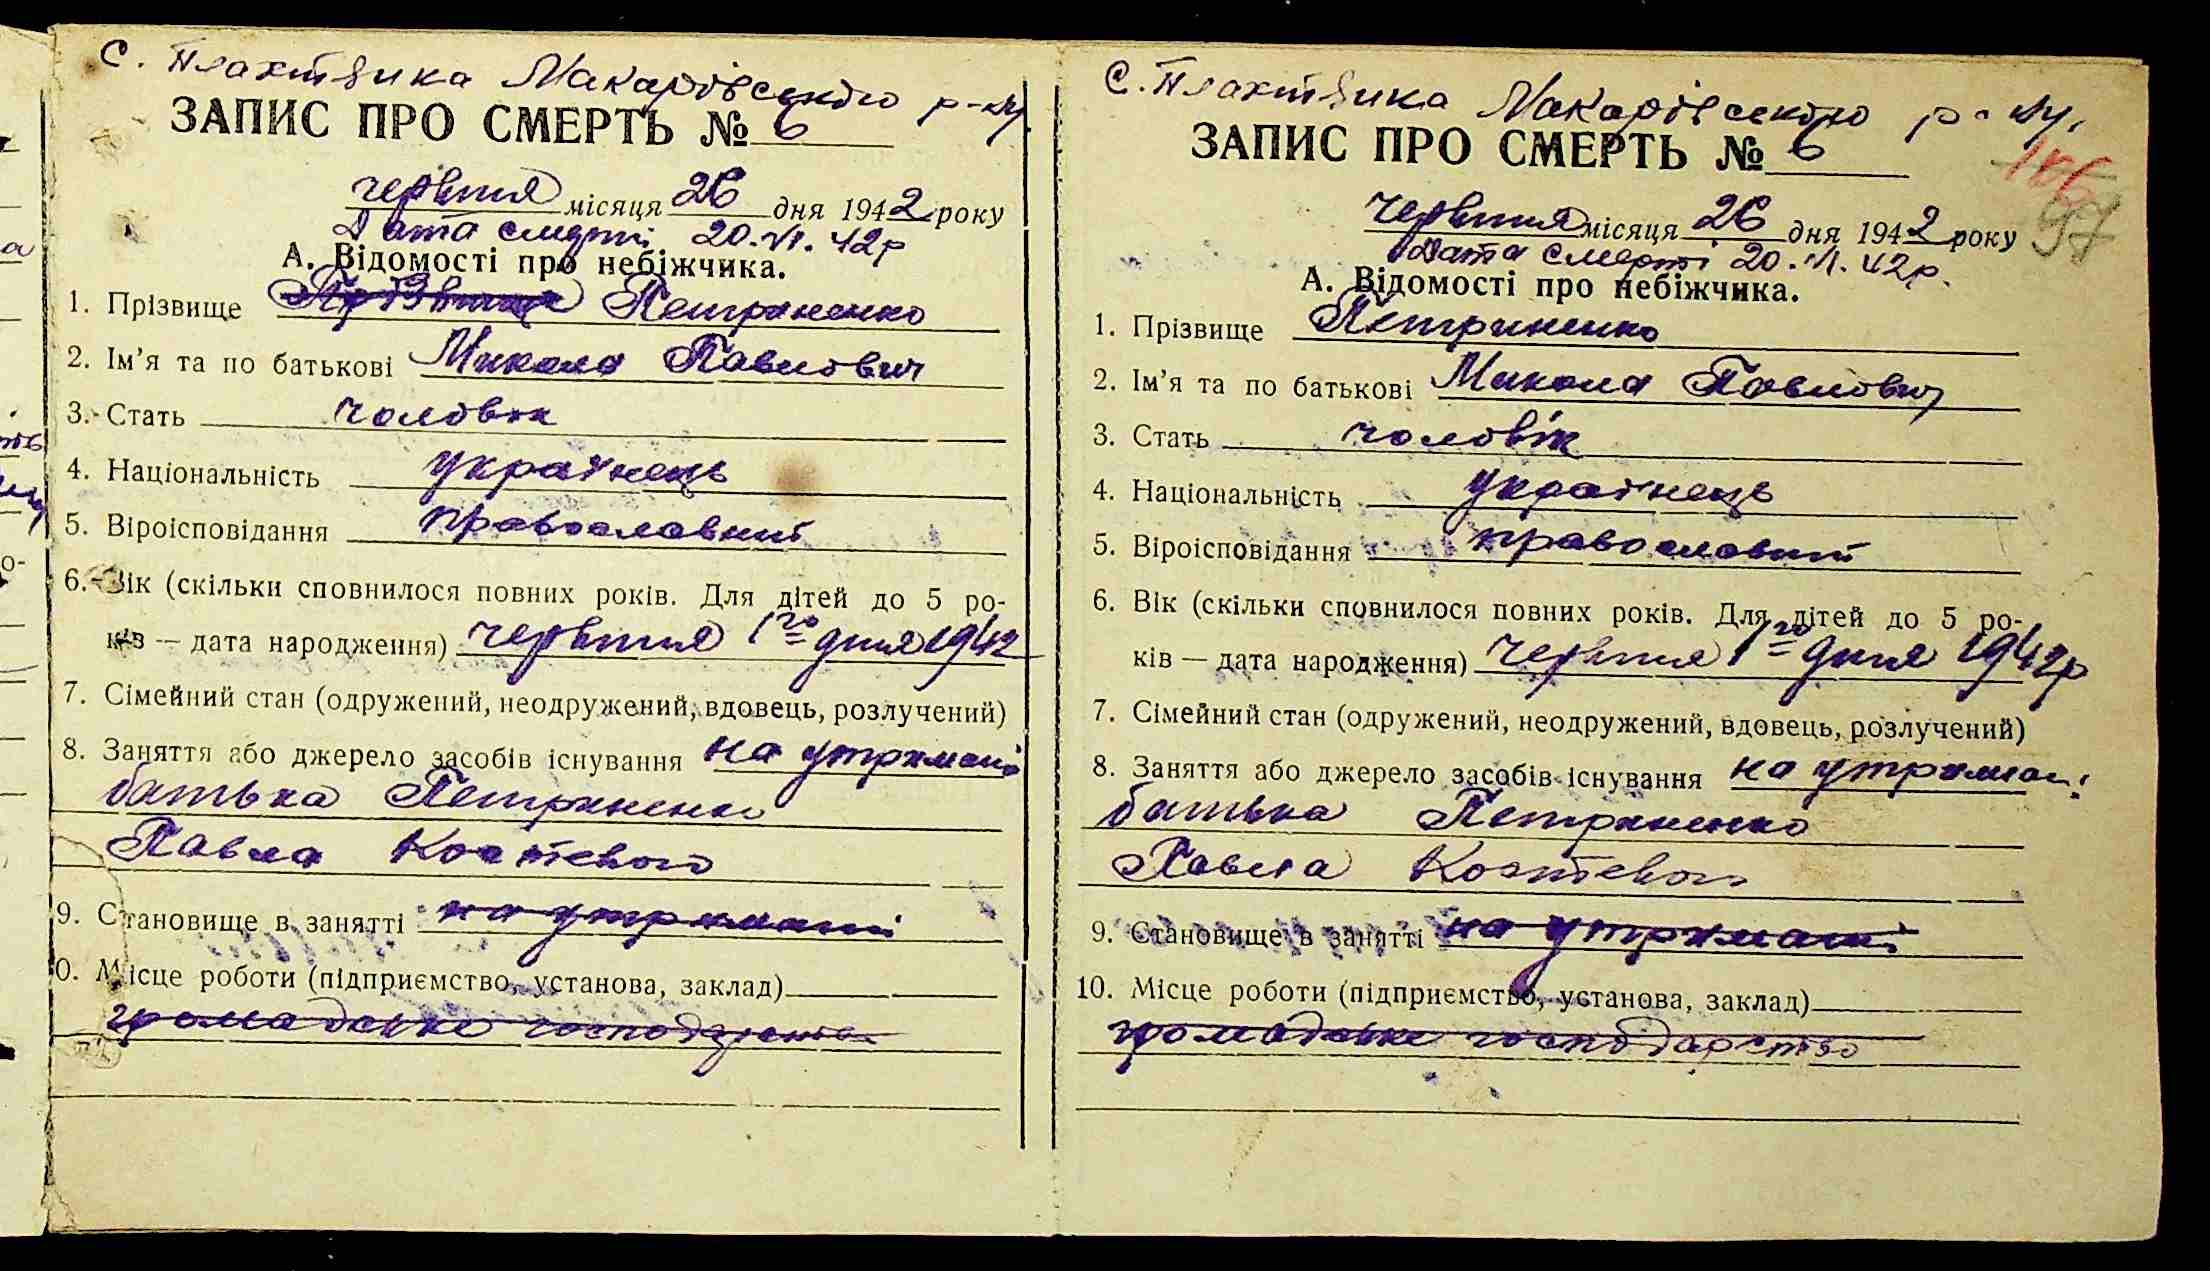 с. Плахтянка Макарівського р-ну
ЗАПИС ПРО СМЕРТЬ № 6
червня місяця 26 дня 1942 року
Дата смерті 20.VI.42р
А. Відомості про небіжчика.
1. Прізвище Петриненко
2. Ім’я та по батькові Микола Павлович
3. Стать чоловік
4. Національність українець
5. Віроісповідання православний
6. Вік (скільки сповнилося повних років. Для дітей до 5 ро-
ків — дата народження) червня 1го дня 1942
7. Сімейний стан (одружений, неодружений, вдовець, розлучений)
8. Заняття або джерело засобів існування на утримані
батька Петриненко
Павла
9. Становище в занятті на утримані
0. Місце роботи (підприємство, установа, заклад)
громадське господарство
С. Плахтянка Макарівського р-ну.
ЗАПИС ПРО СМЕРТЬ № 6
97
червня місяця 26 дня 1942 року
Дата смерті 20.VI.42р.
А. Відомості про небіжчика.
1. Прізвище Петриненко
2. Ім’я та по батькові Микола Павлович
3. Стать чоловік
4. Національність українець
5. Віроісповідання православний
6. Вік (скільки сповнилося повних років. Для дітей до 5 ро-
ків — дата народження) червня 1го дня 1942р
7. Сімейний стан (одружений, неодружений, вдовець, розлучений)
8. Заняття або джерело засобів існування на утримані
батька Петриненко
Павла
9. Становище в занятті на утримані
10. Місце роботи (підприємство, установа, заклад)
громадське господарство